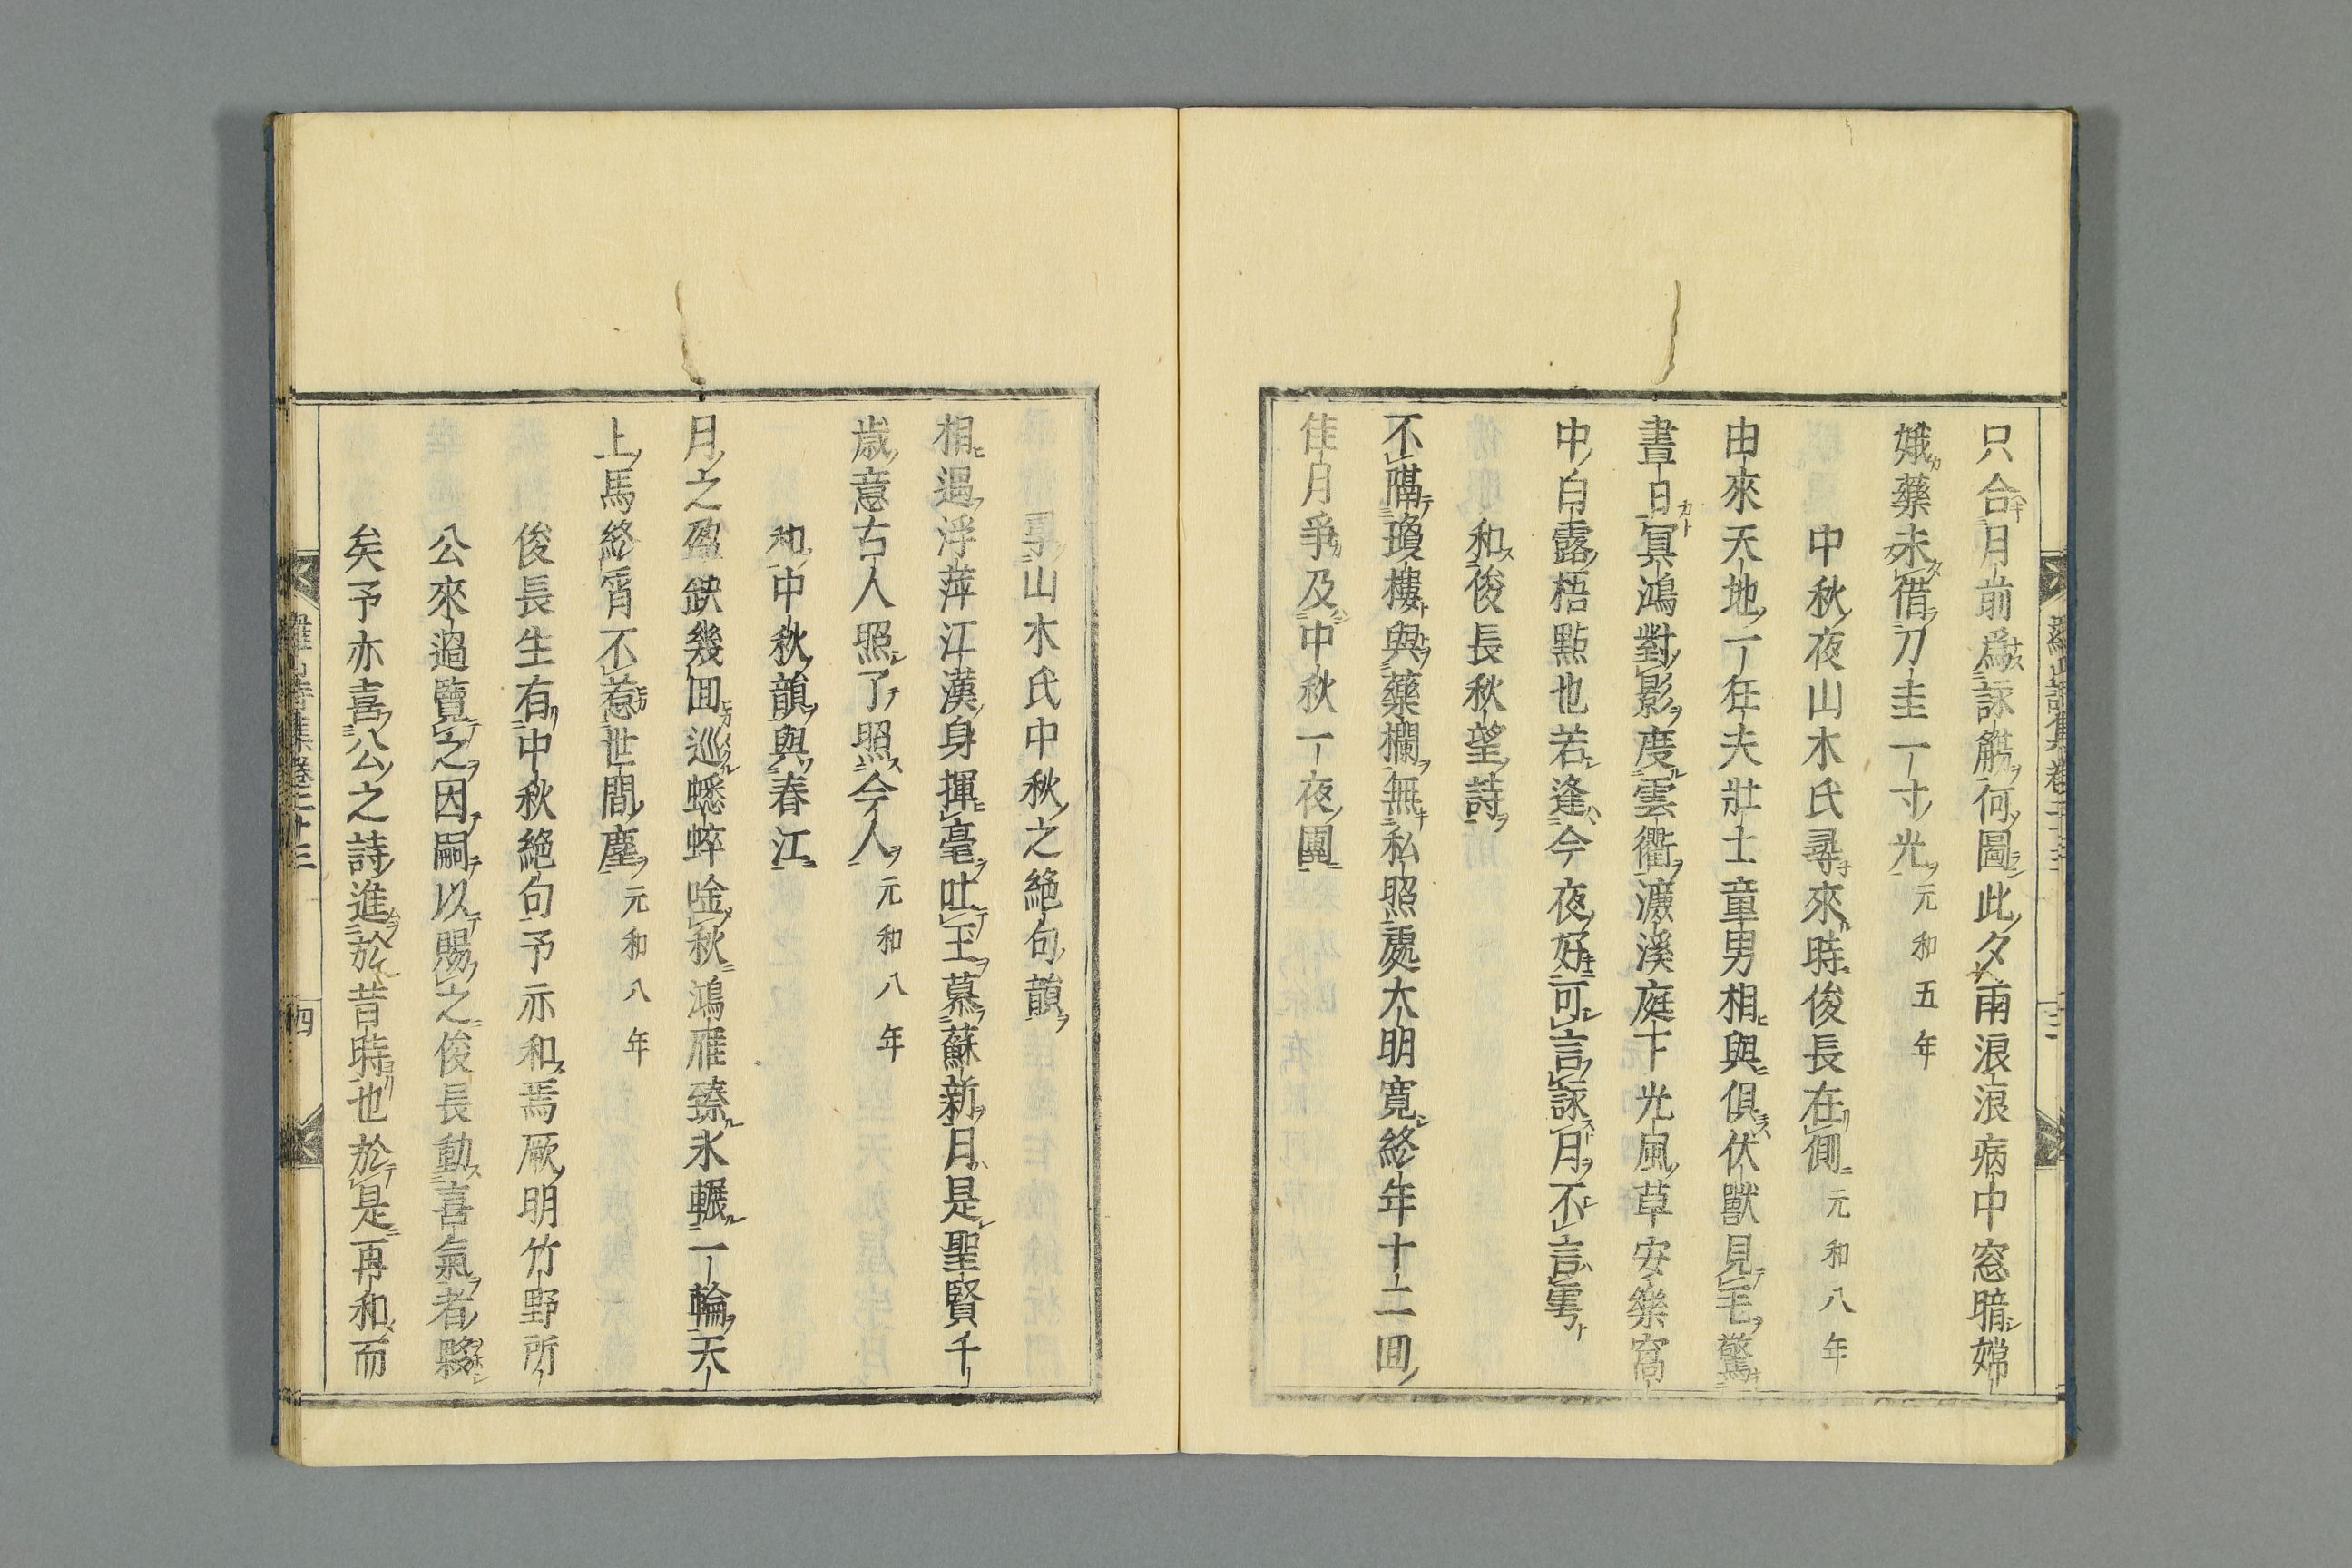 只合月前爲詠觴何圖此夕雨浪浪病中窓暗嫦
娥藥未借刀圭一寸光元和五年
中秋夜山木氏尋來時俊長在側元和八年
由來天地一狂夫壯士童男相與俱伏獸見毛驚
晝日冥鴻對影度雲衢濂溪庭下光風草安樂窩
中白露梧點也若逢今夜好可言詠月不言雩
和俊長秋望詩
不隔瓊樓與藥欄無私照處大明寬終年十二回
佳月爭及中秋一夜團
山木氏中秋之絶句韻
相遇浮萍江漢身揮毫吐玉慕蘇新月是聖賢千
歳意古人照了照今人元和八年
和中秋韻與春江
月之盈缺幾回巡蟋蟀唫秋鴻雁臻氷輾一輪天
上馬終宵不惹世間塵元和八年
俊長生有中秋絶句予亦和焉厥明竹野所
公來過覽之因嗣以賜之俊長動喜氣者夥
矣予亦喜公之詩進於昔時也於是再和而
羅山詩集卷三十三
四